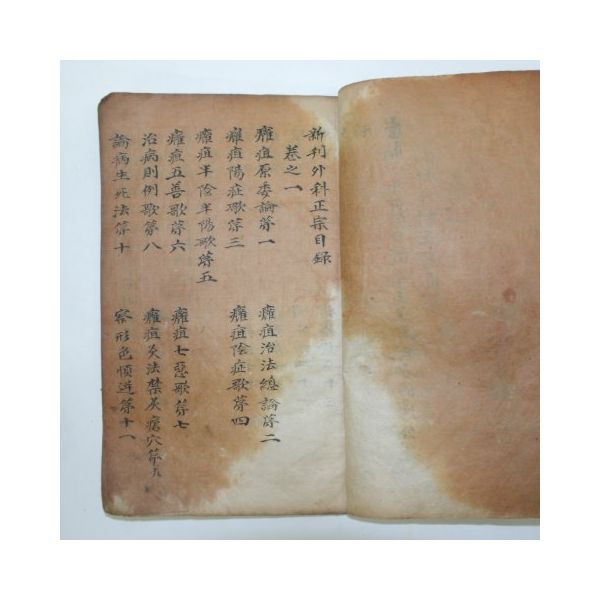 新刊外科正宗目録
卷之一
癰疽原委論第一
癰疽治法總論第二
癰疽陽症歌第三
癰疽陰症歌第四
癰疽半陰半陽歌第五
癰疽五善歌第六
癰疽七惡歌第七
治病則例歌第八
癰疽灸法禁灸瘡穴第九
論病生死法第十
察形色順逆第十一